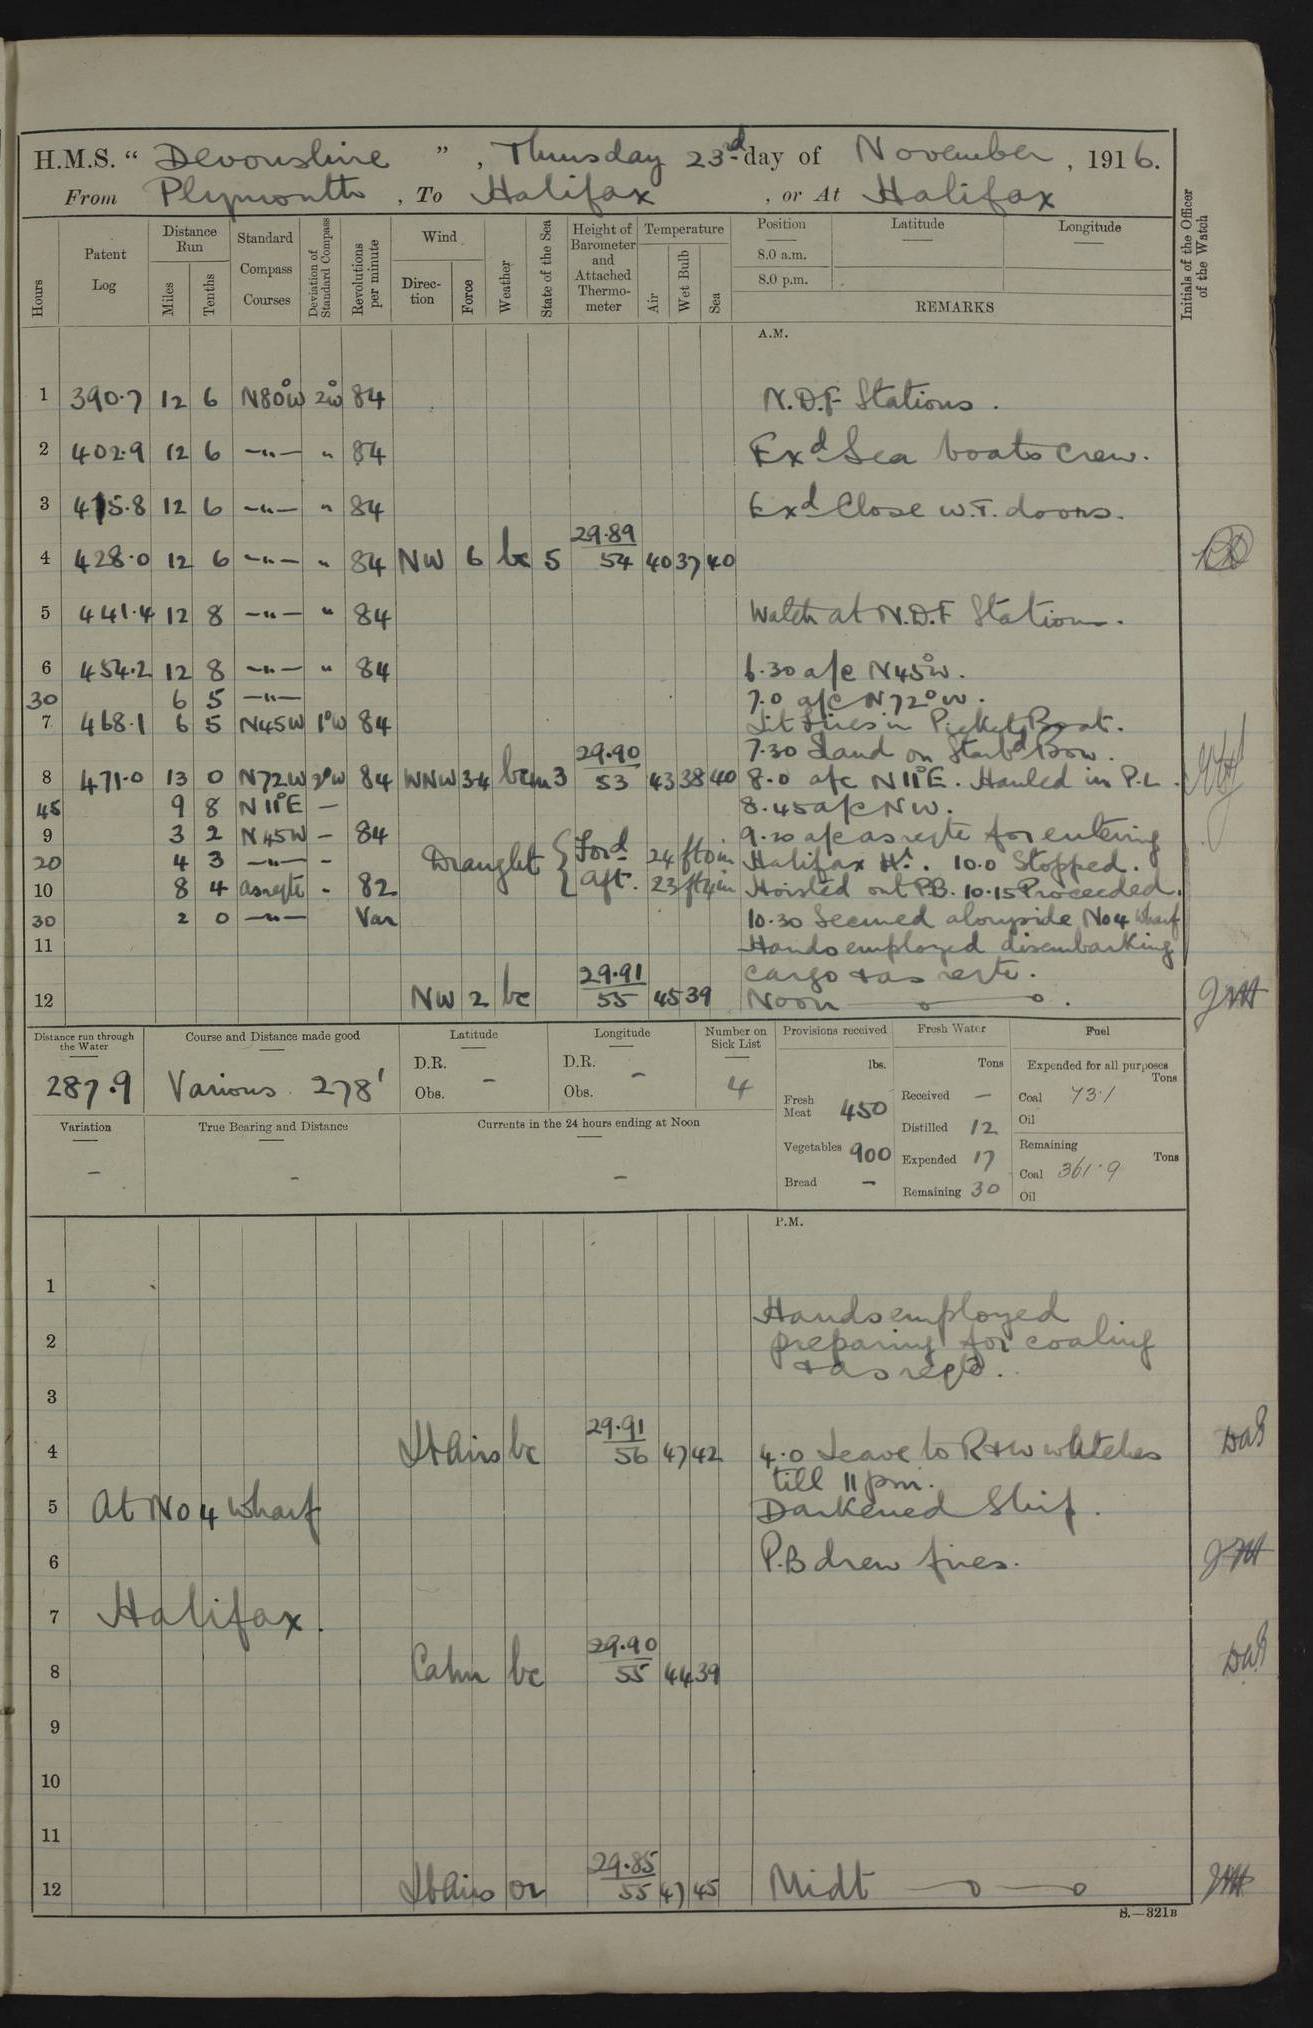 H.M.S. " Devonshire ", Thursday 23rd day of November, 1916.
From Plymouth, To Halifax, or At Halifax
Hours
Patent Log
Distance Run
Miles
Tenths
Standard Compass Courses
Deviation of Standard Compass
Revolutions per minute
Wind
Direction
Force
Weather
State of the Sea
Height of Barometer and Attached Thermometer
Temperature
Air
Wet Bulb
Sea
Position
Latitude
Longitude
8.0 a.m.
8.0 p.m.
REMARKS
Initials of the Officer of the Watch
A.M.
1 390.7 12 6 N80°W 2°W 84 N.D.F Stations.
2 402.9 12 6 —"— " 84 Exd Sea boats crew.
3 415.8 12 6 —"— " 84 Exd Close W.T. doors.
4 428.0 12 6 —"— " 84 NW 6 bc 5 29.89 54 40 37 40
5 441.4 12 8 —"— " 84 Watch at N.D.F Stations.
6 454.2 12 8 —"— " 84 6.30 a/c N45°W.
30 6 5 —"— 7.0 a/c N72°W.
7 468.1 6 5 N45W 1°W 84 Lit fires in Picket Boat.
7.30 Land on Starbd Bow.
8 471.0 13 0 N72W 2°W 84 WNW 3.4 bcm 3 29.90 53 43 38 40 8.0 a/c N11°E. Hauled in P.L.
45 9 8 N11°E — 8.45 a/c NW.
9 3 2 N45W - 84 9.20 a/c as reqte for entering
20 4 3 —"— - Draught { Ford 24 ft 0 in Halifax Hr. 10.0 Stopped.
10 8 4 as reqte - 82 Aft. 23 ft 4 in Hoisted out P.B. 10.15 Proceeded.
30 2 0 —"— Var 10.30 Secured alongside No 4 Wharf
11 Hands employed disembarking
cargo & as reqte.
12 NW 2 bc 29.91 55 45 39 Noon
Distance run through the Water
287.9
Course and Distance made good
Various 278'
Latitude
D.R.
Obs. -
Longitude
D.R.
Obs. -
Number on Sick List
4
Provisions received
lbs.
Fresh Meat 450
Vegetables 900
Bread -
Fresh Water
Tons
Received -
Distilled 12
Expended 17
Remaining 30
Fuel
Expended for all purposes
Tons
Coal 73.1
Oil
Remaining
Tons
Coal 361.9
Oil
Variation
-
True Bearing and Distance
-
Currents in the 24 hours ending at Noon
-
P.M.
1
Hands employed
2 preparing for coaling
& as reqd.
3
4 Lt Airs bc 29.91 56 47 42 4.0 Leave to R & W watches
till 11 pm.
5 At No 4 Wharf Darkened Ship.
6 P.B drew fires.
7 Halifax.
8 Calm bc 29.90 55 44 39
9
10
11
12 Lt Airs or 29.85 55 47 45 Midt
S.—321B